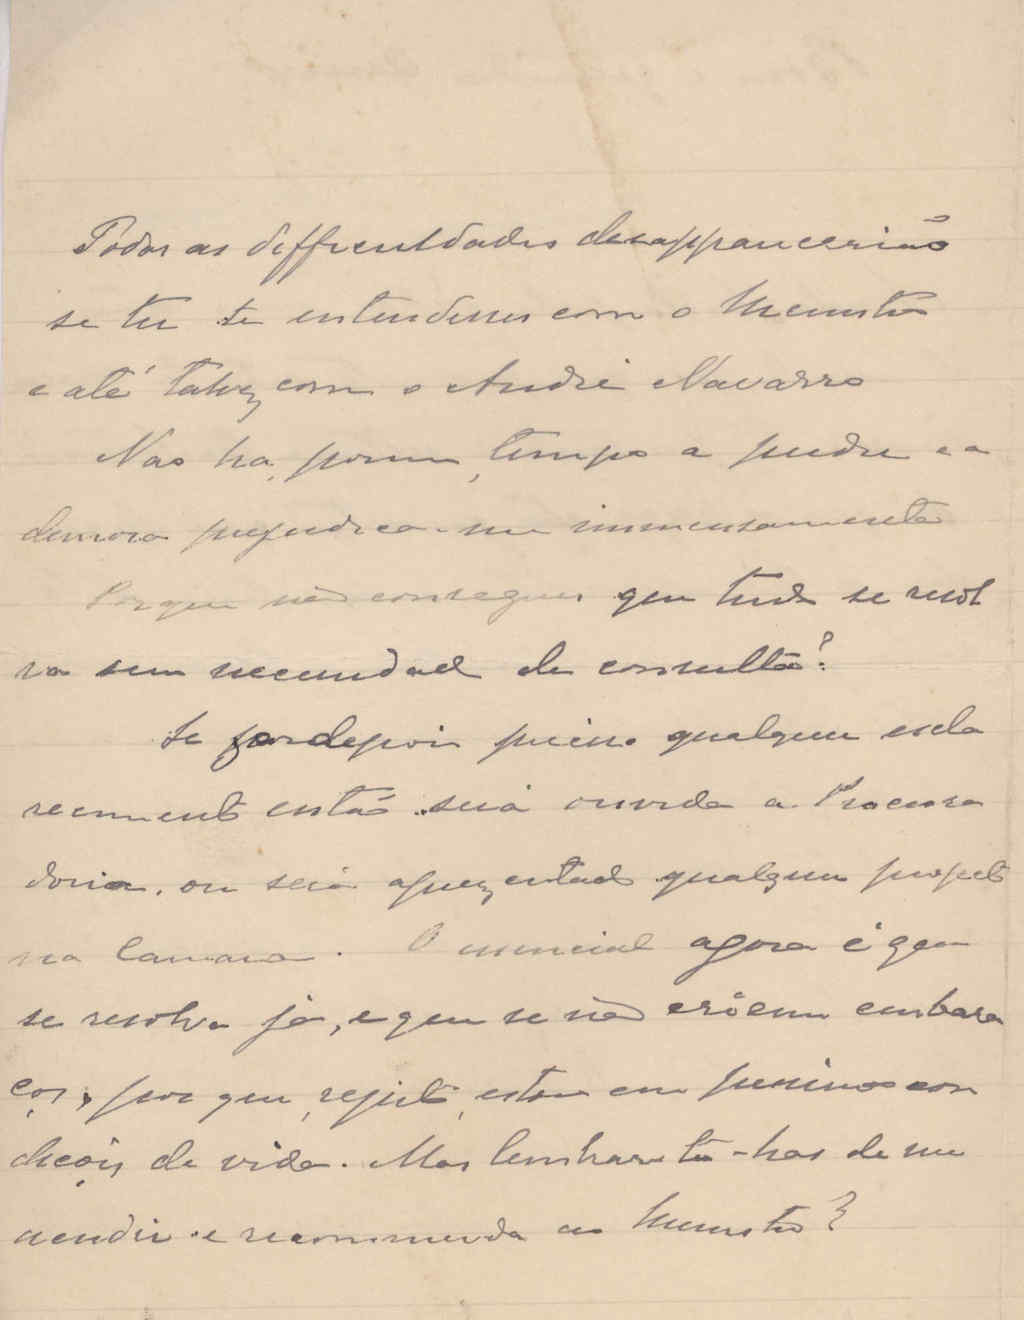 Todas as difficuldades desappareceriaõ
se tu te entendesses com o Menistro
e até talvez com o André Navarro
Nao ha, porem, tempo a perder e a
demora prejudica-me immensamente
Porque não consegues que tudo se resol
va sem necessidade de consulta?
Se for depois preciso qualquer escla
recimento então será ouvida a Procura
doria, ou será apresentado qualquer projecto
na Camara. O essencial agora é que
se resolva já, e que se não criem embara
ços, por que, repito, estou em pessimas con
dicões de vida. Mas lembrar-te-has de me
attender e recommendar ao Menistro?